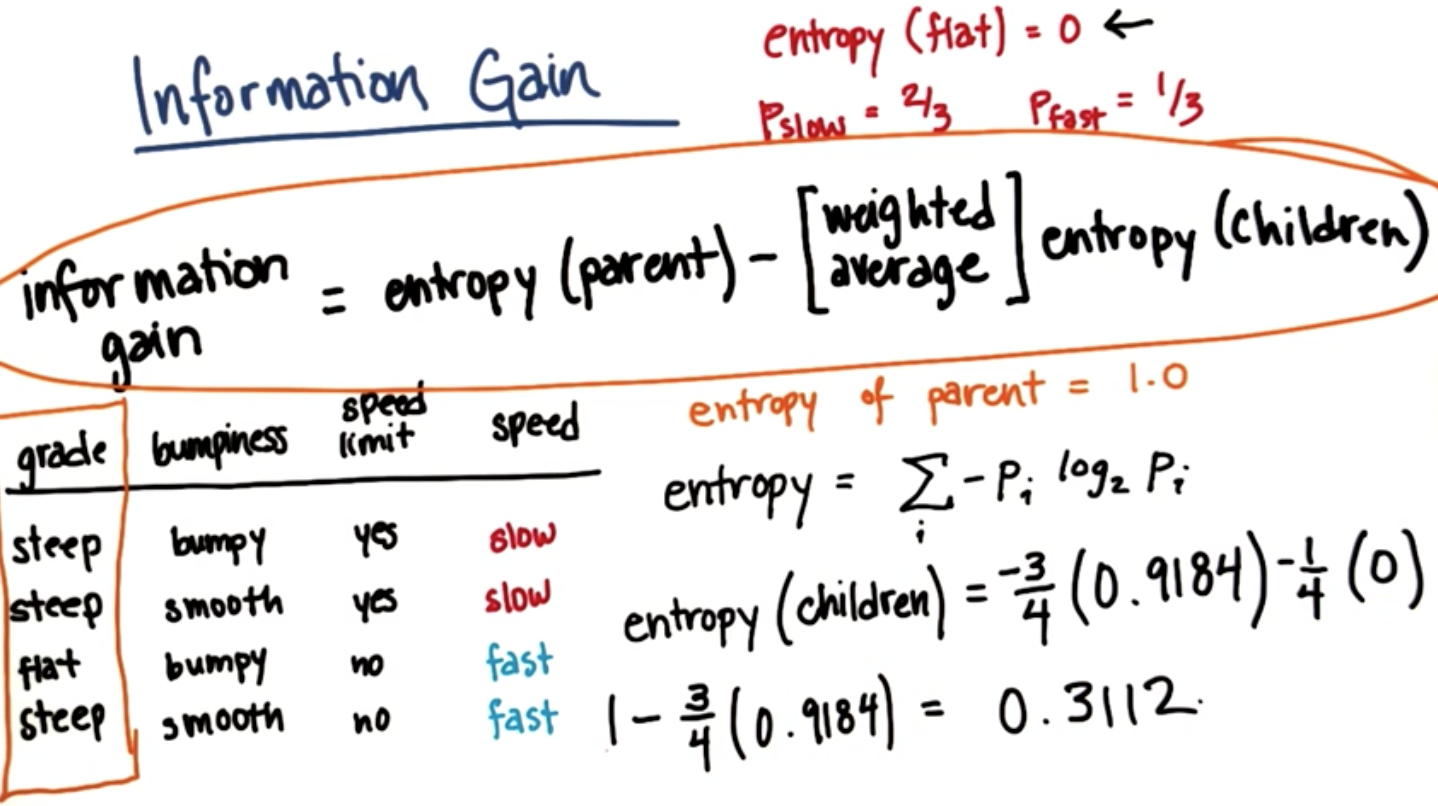 Information Gain
entropy (flat) = 0 ←
Pslow = 2/3 Pfast = 1/3
information gain = entropy (parent) - [weighted average] entropy (children)
entropy of parent = 1.0
grade bumpiness speed limit speed
steep bumpy yes slow
steep smooth yes slow
flat bumpy no fast
steep smooth no fast
entropy = ∑i -Pi log2 Pi
entropy (children) = -3/4 (0.9184) -1/4 (0)
1 - 3/4 (0.9184) = 0.3112